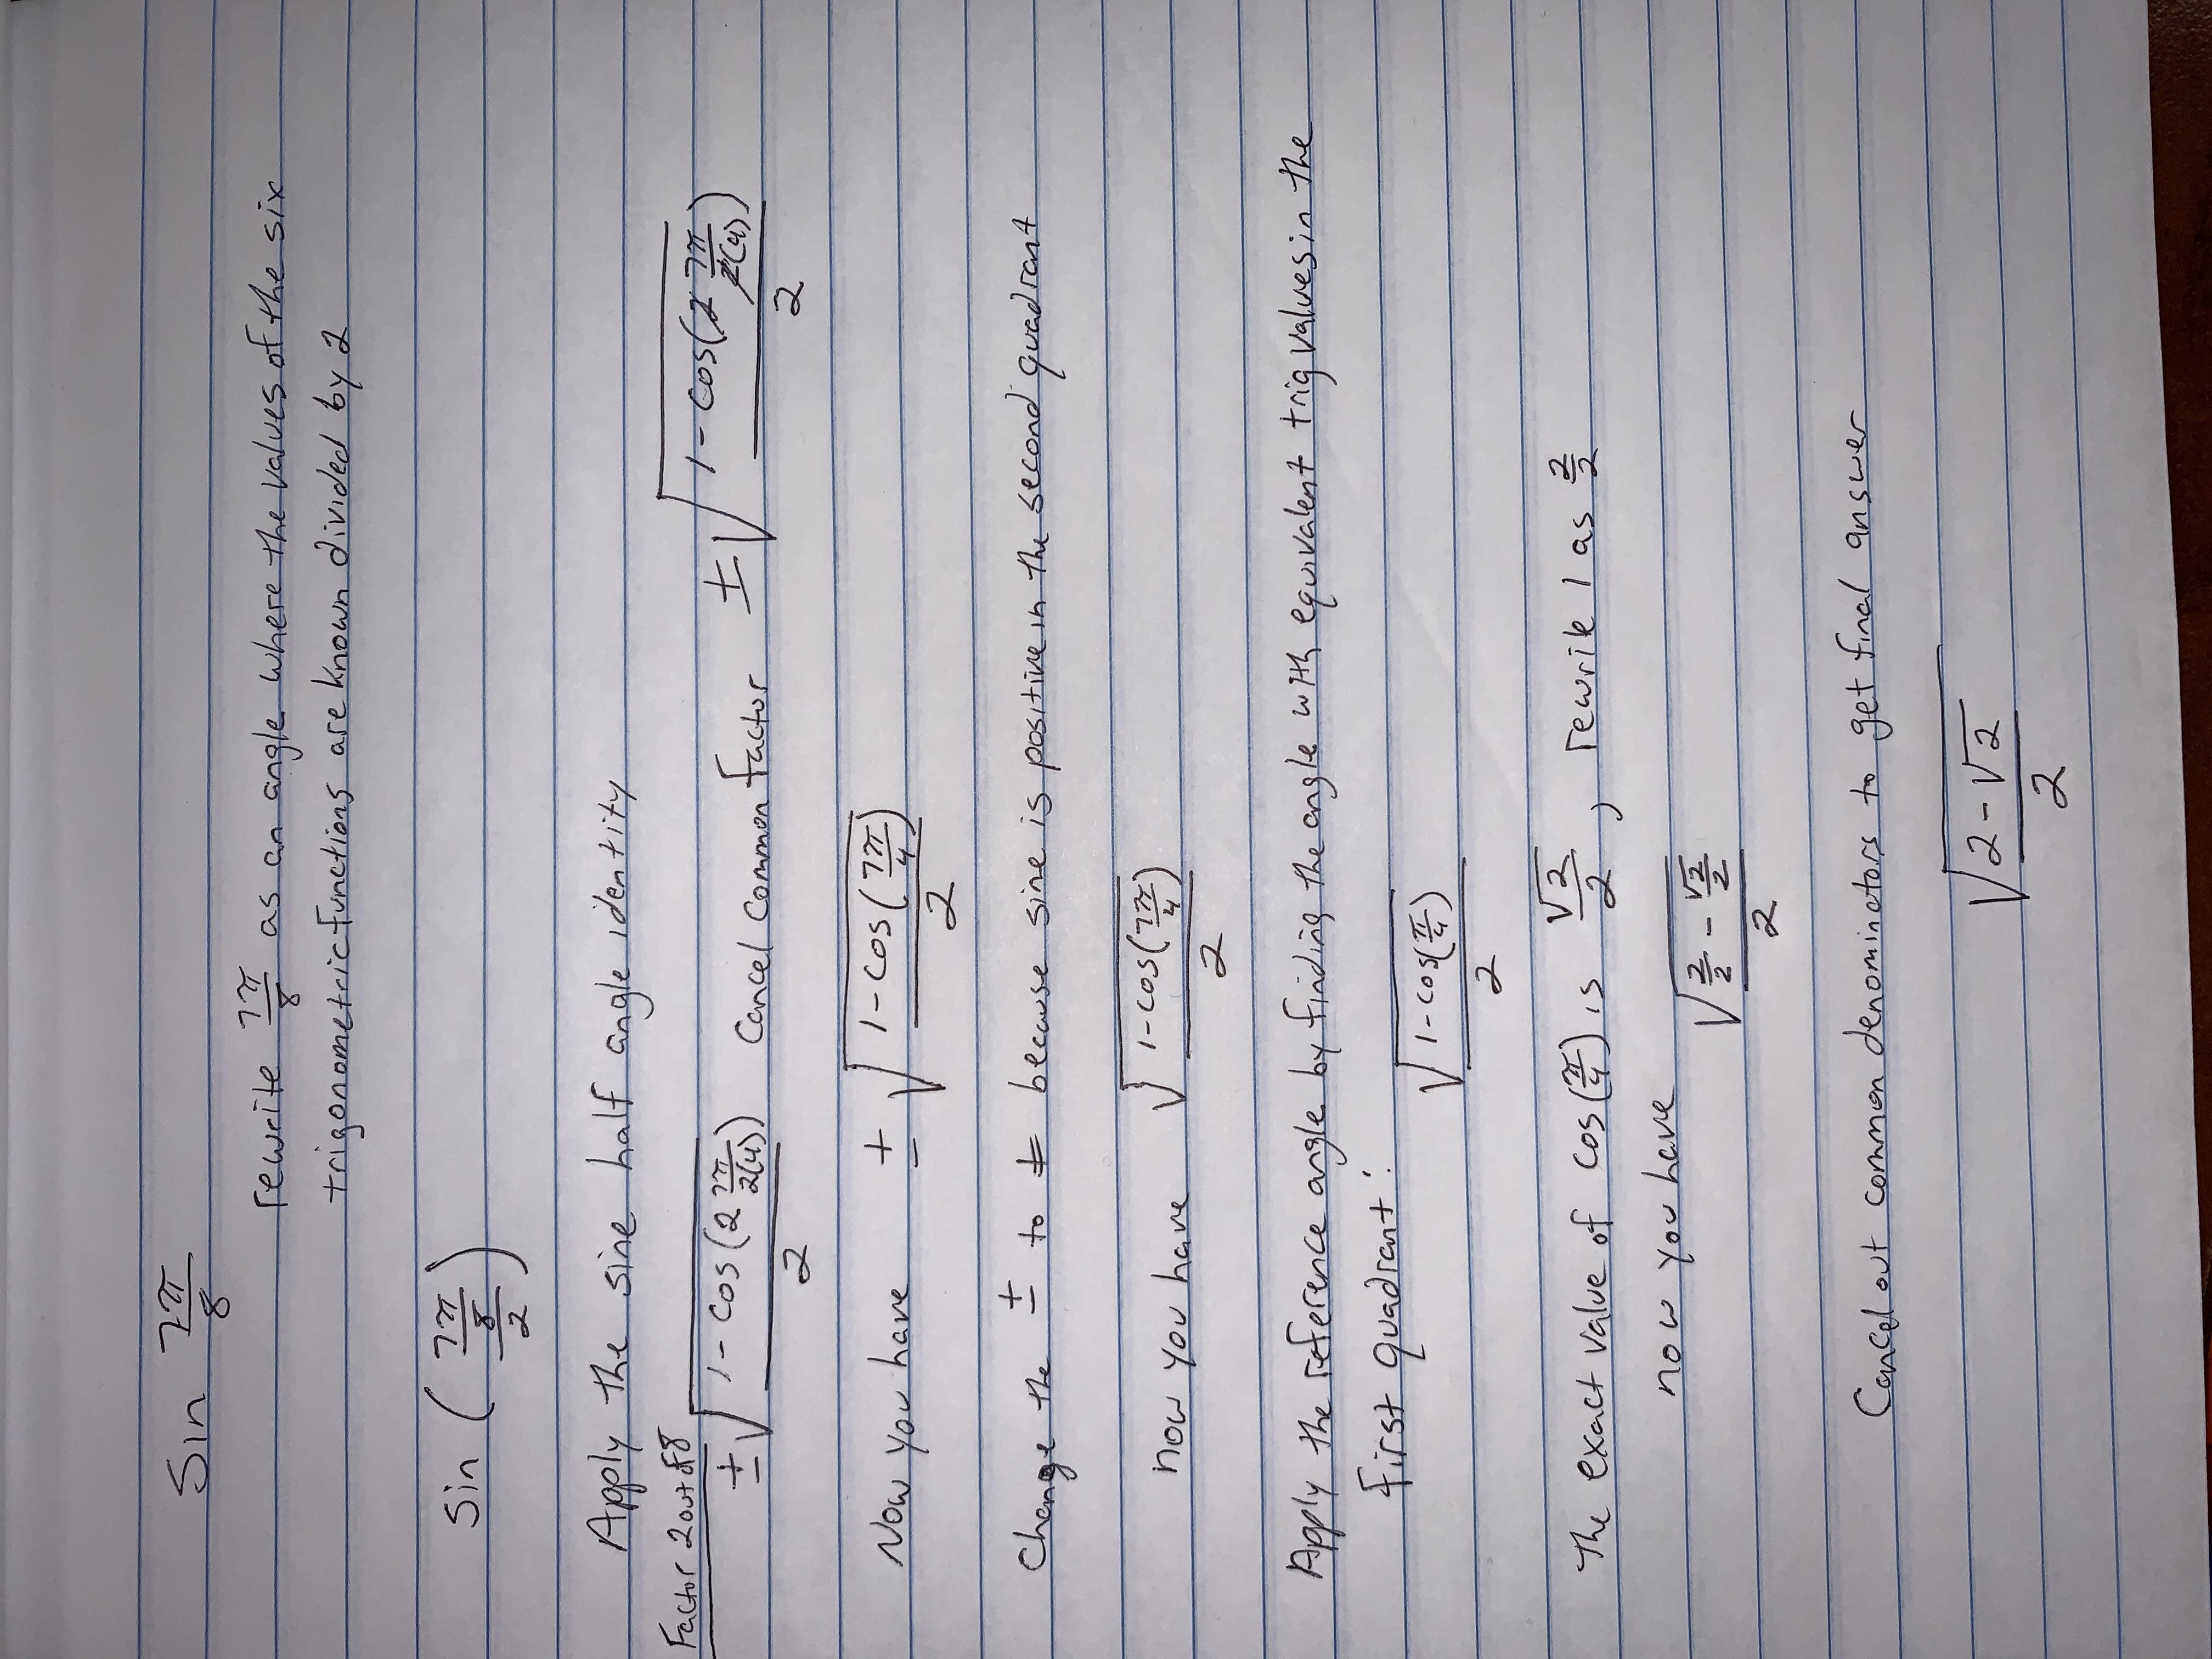 Sin 7π/8
rewrite 7π/8 as an angle where the values of the six
trigonometric functions are known divided by 2
Sin (7π/8/2)
Apply the sine half angle identity
Factor 2 out of 8
±√(1-cos(2 7π/2(4))/2) Cancel common factor ±√(1-cos(2 7π/2(4))/2)
Now you have ±√(1-cos(7π/4)/2)
Change the ± to + because sine is positive in the second quadrant
now you have √(1-cos(7π/4)/2)
Apply the reference angle by finding the angle with equivalent trig values in the
first quadrant.
√(1-cos(π/4)/2)
The exact value of cos(π/4) is √2/2, rewrite 1 as 2/2
now you have
√(2/2-√2/2/2)
Cancel out common denominators to get final answer
√(2-√2)/2